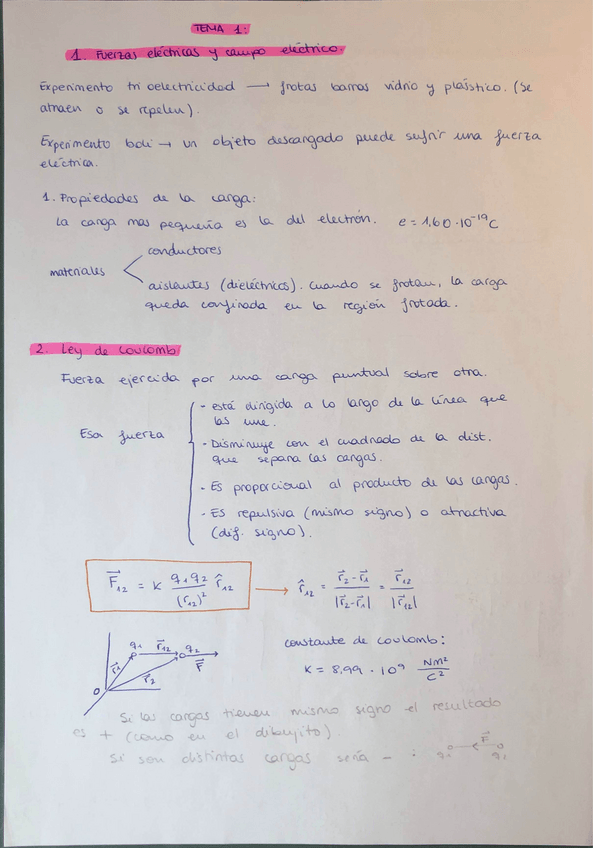 TEMA 1:
1. Fuerzas eléctricas y campo eléctrico.
Experimento triboelectricidad → frotas barras vidrio y plástico. (Se
atraen o se repelen).
Experimento boli → un objeto descargado puede sufrir una fuerza
eléctrica.
1. Propiedades de la carga:
La carga mas pequeña es la del electrón. e = 1,60·10⁻¹⁹C
conductores
materiales
aislantes (dieléctricos). Cuando se frotan, la carga
queda confinada en la región frotada.
2. Ley de Coulomb
Fuerza ejercida por una carga puntual sobre otra.
- está dirigida a lo largo de la línea que
las une.
Esa fuerza
- Disminuye con el cuadrado de la dist.
que separa las cargas.
- Es proporcional al producto de las cargas.
- Es repulsiva (mismo signo) o atractiva
(dif. signo).
F⃗₁₂ = K q₁q₂/(r₁₂)² r̂₁₂ → r̂₁₂ = (r⃗₂-r⃗₁)/|r⃗₂-r⃗₁| = r⃗₁₂/|r⃗₁₂|
constante de coulomb:
q₁ r⃗₁₂ q₂
r⃗₁ r⃗₂ F⃗
O
K = 8,99 · 10⁹ Nm²/C²
Si las cargas tienen mismo signo el resultado
es + (como en el dibujito).
Si son distintas cargas sería - :
F⃗